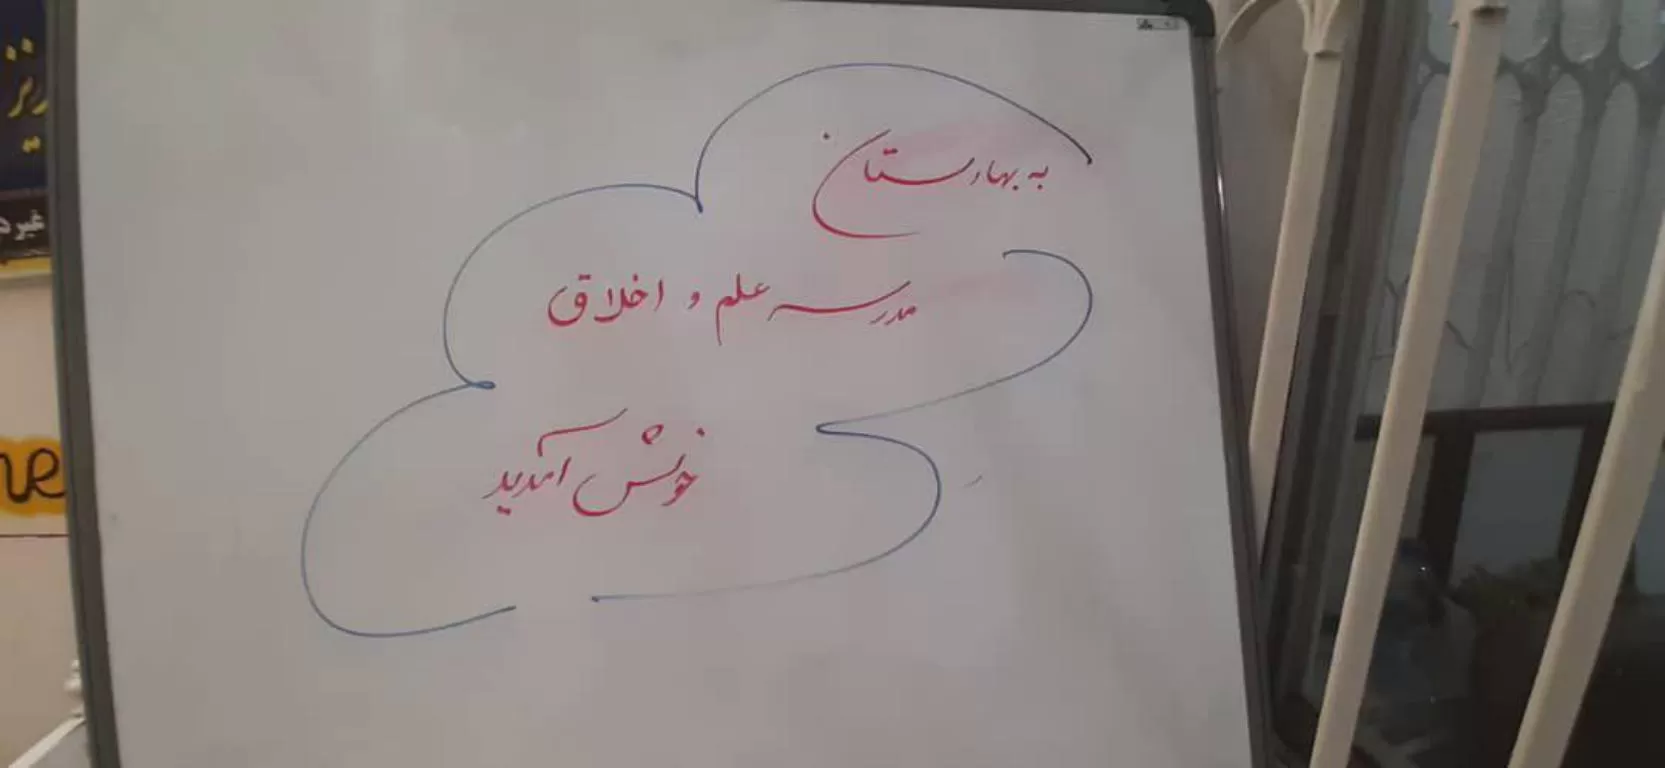 به بهارستان
مدرسه علم و اخلاق
خوش آمدید